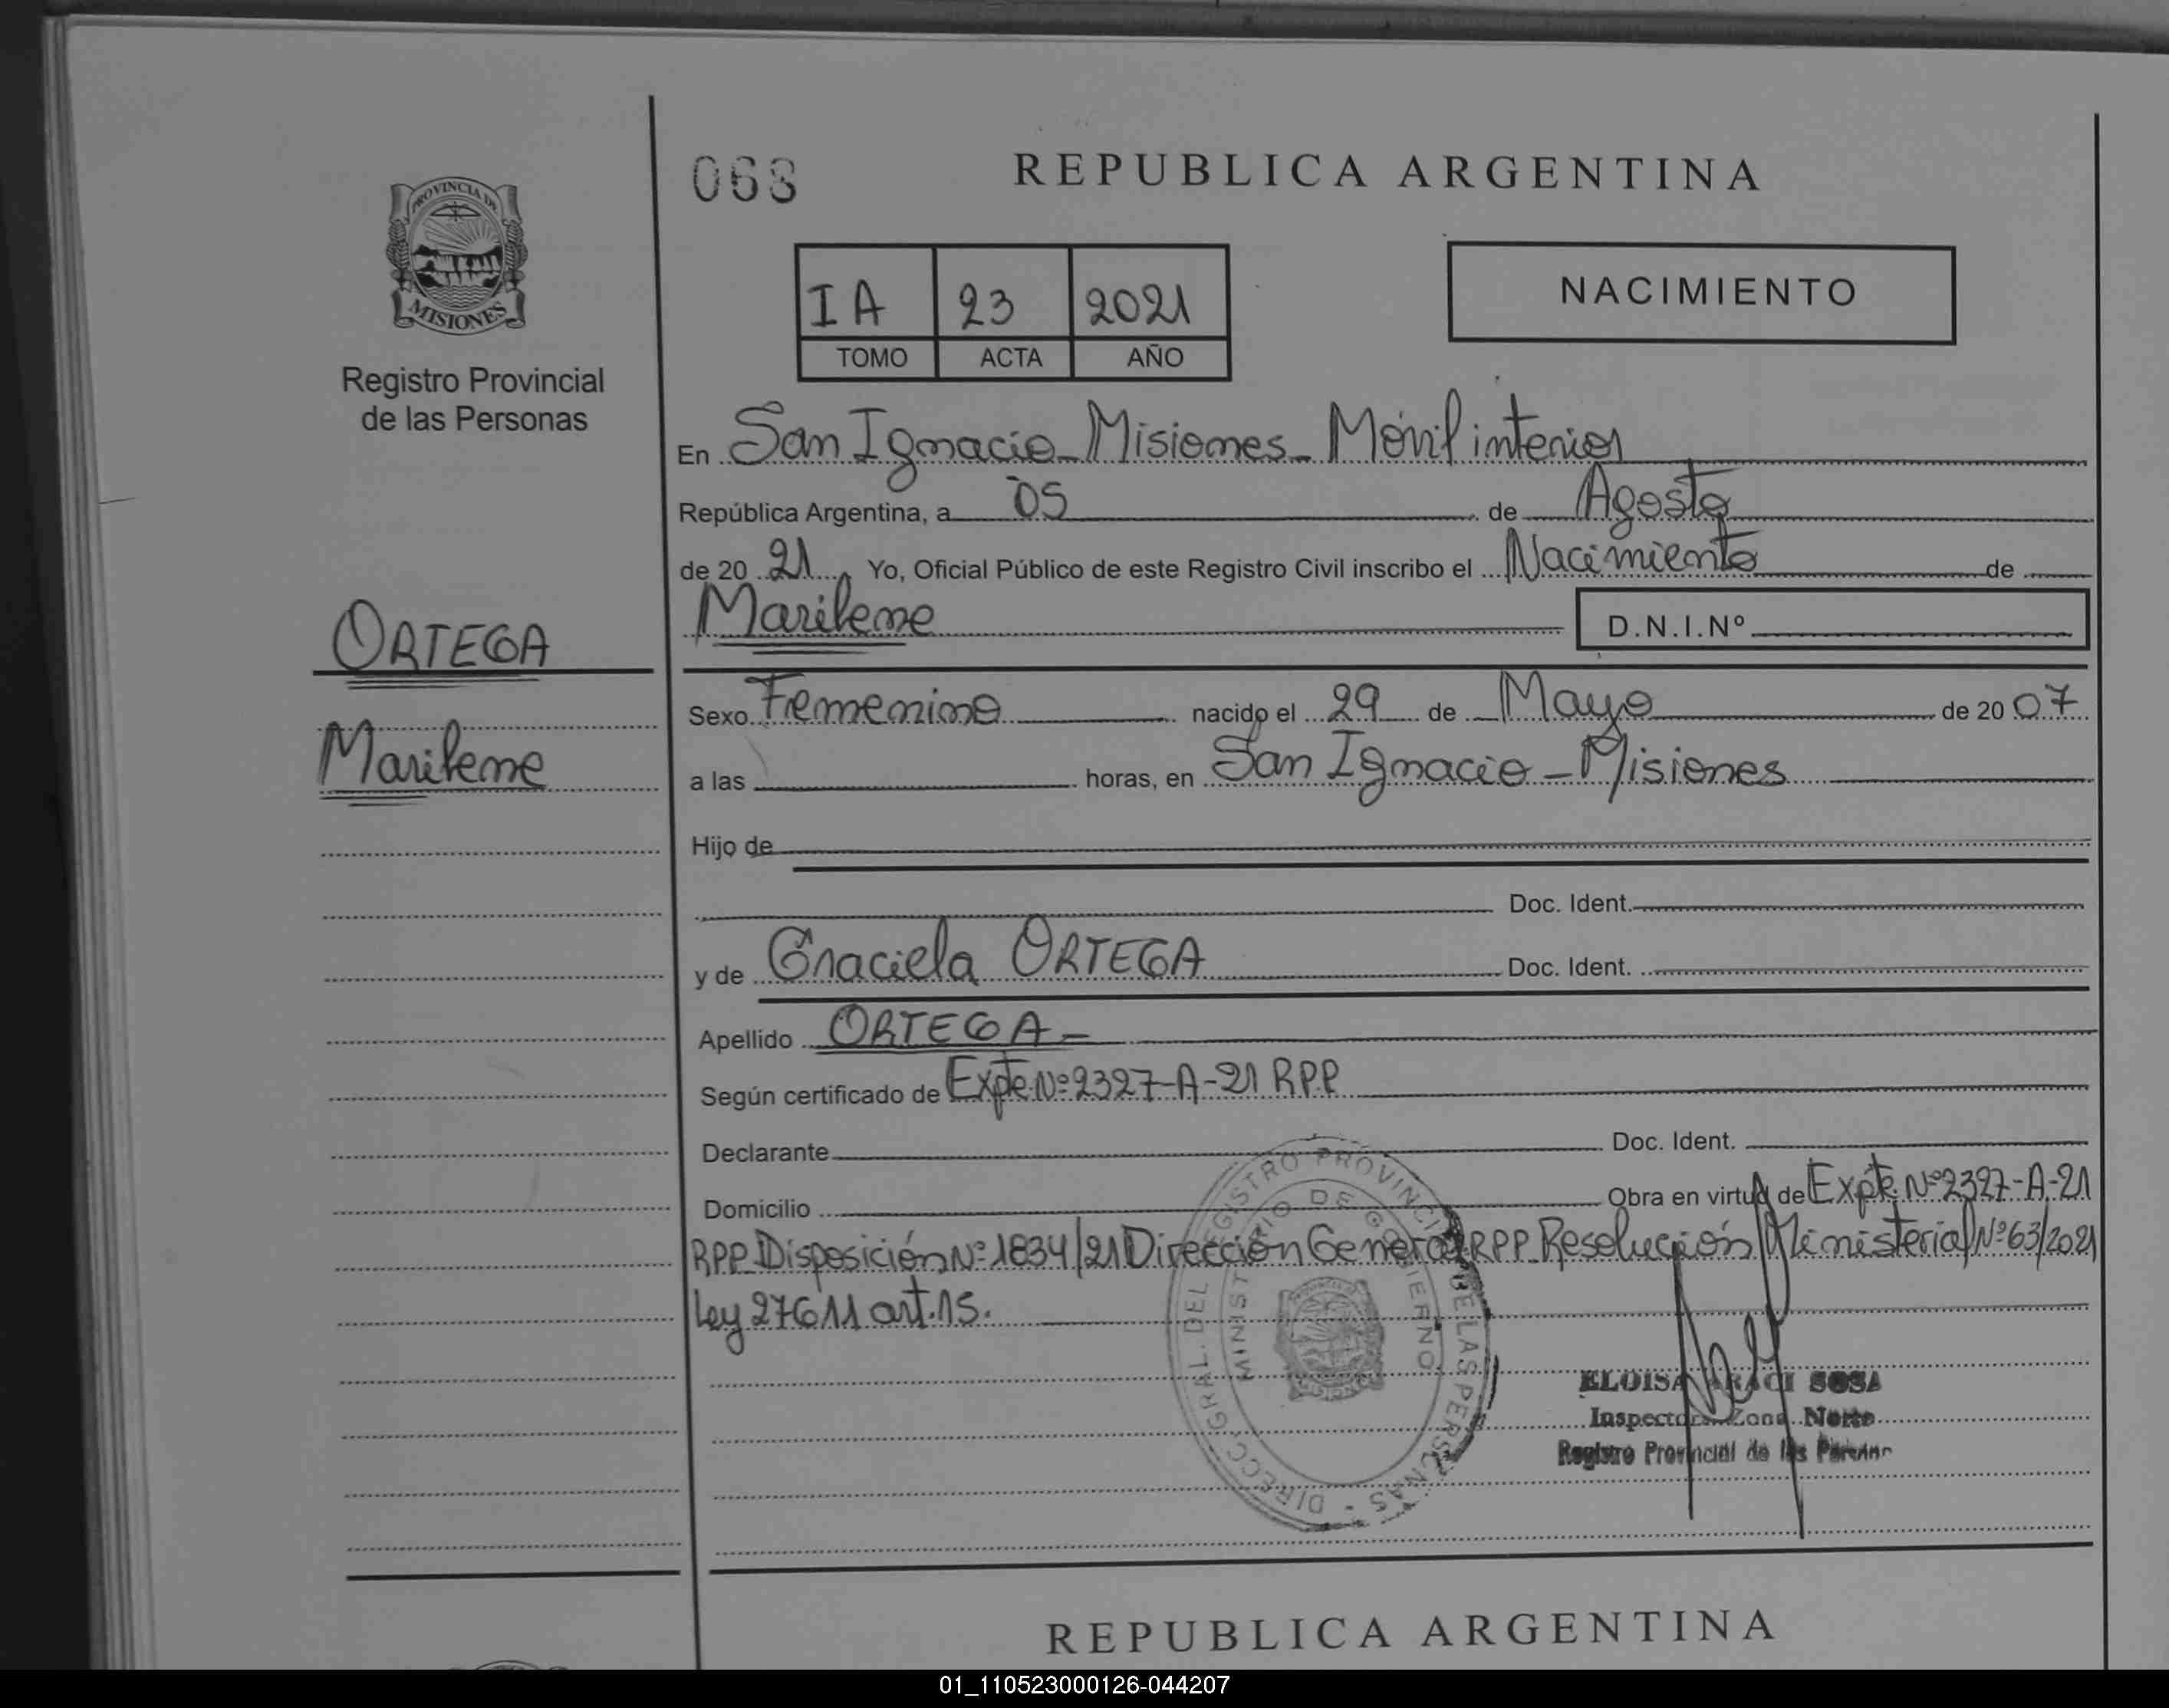 068
REPUBLICA ARGENTINA
PROVINCIA DE
MISIONES
Registro Provincial
de las Personas
IA 23 2021
TOMO ACTA AÑO
NACIMIENTO
En San Ignacio - Misiones - Móvil interior
República Argentina, a 05 de Agosto
de 20 21 Yo, Oficial Público de este Registro Civil inscribo el Nacimiento de
Marilene D.N.I.Nº
ORTEGA
Marilene
Sexo Femenino nacido el 29 de Mayo de 20 07
a las horas, en San Ignacio - Misiones
Hijo de
Doc. Ident.
y de Graciela ORTEGA Doc. Ident.
Apellido ORTEGA -
Según certificado de Expte. Nº 2327-A-21 RPP
Declarante Doc. Ident.
Domicilio Obra en virtud de Expte. Nº 2327-A-21
RPP Disposición Nº 1834/21 Dirección General RPP Resolución Ministerial Nº 63/2021
Ley 27611 art. 15.
DIRECC. GRAL. DEL REGISTRO PROVINCIAL DE LAS PERSONAS
MINISTERIO DE GOBIERNO
ELOISA ARACI SOSA
Inspectora Zona Norte
Registro Provincial de las Personas
REPUBLICA ARGENTINA
01_110523000126-044207